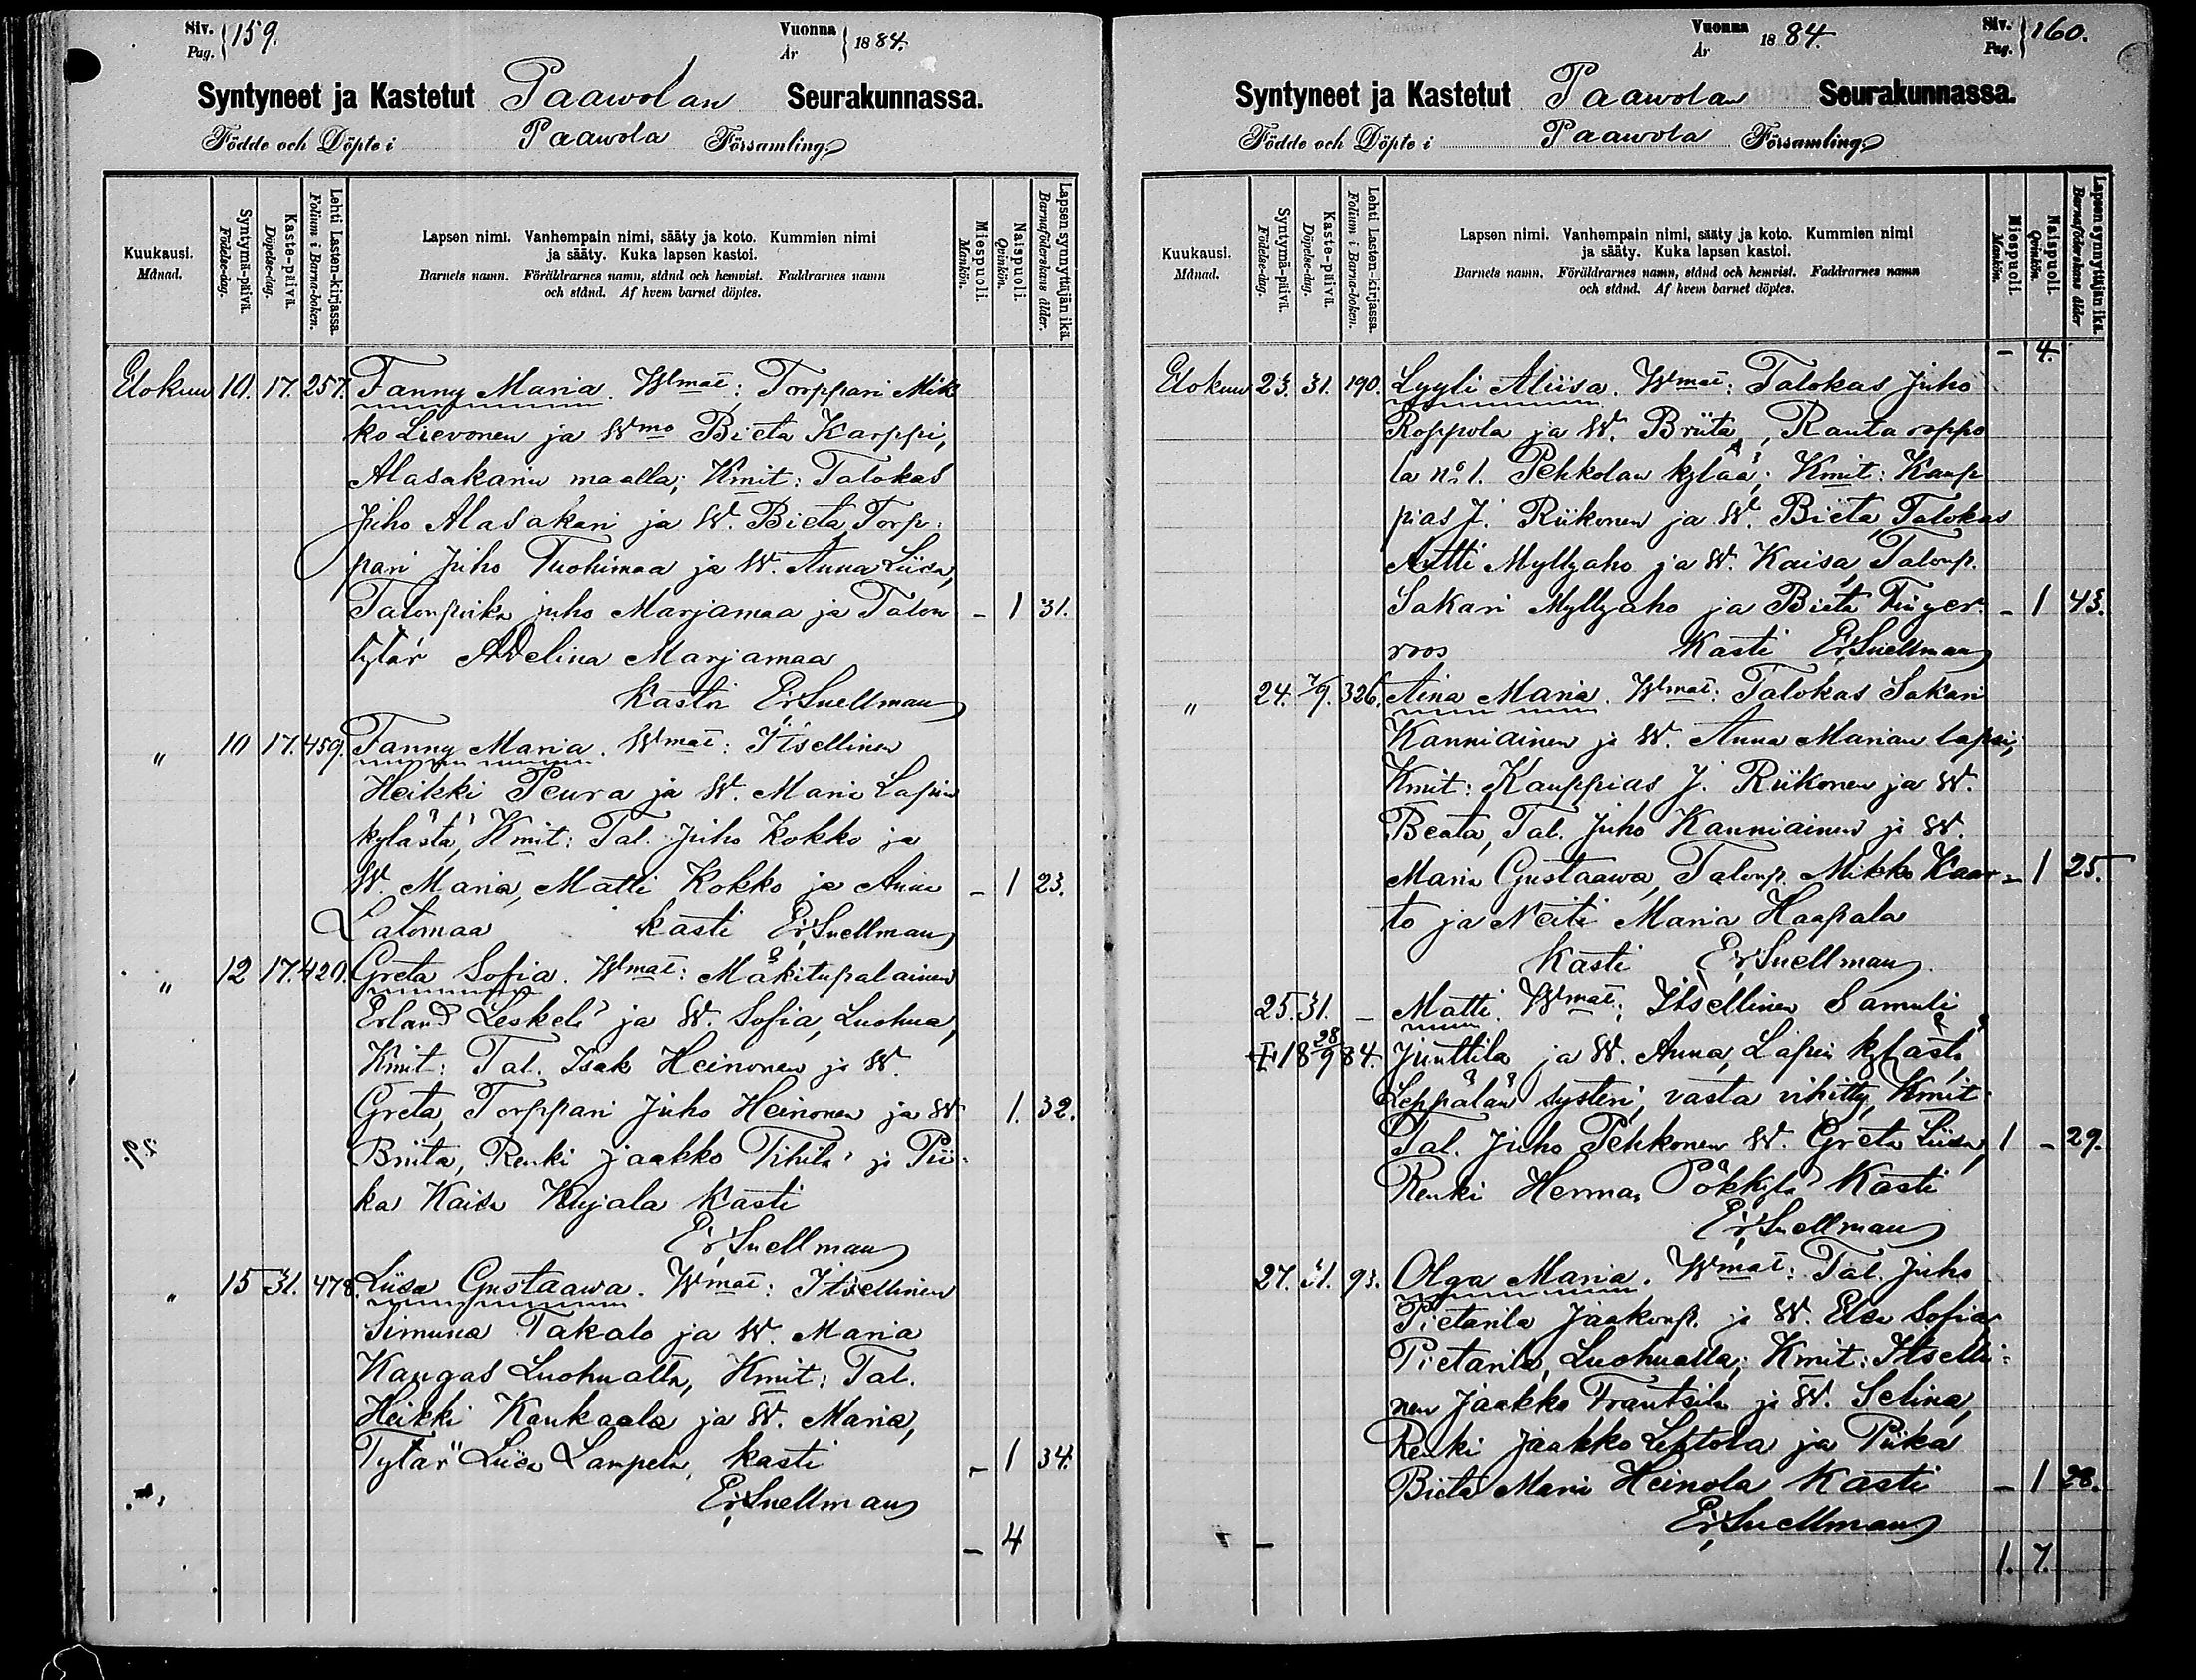 Siv. Pag. 159.
Vuonna År 1884.
Syntyneet ja Kastetut Paawolan Seurakunnassa.
Födde och Döpte i Paawola Församling.
Kuukausi. Månad.
Syntymä-päivä. Födelse-dag.
Kaste-päivä. Döpelse-dag.
Lehti Lasten-kirjassa. Folium i Barna-boken.
Lapsen nimi. Vanhempain nimi, sääty ja koto. Kummien nimi
ja sääty. Kuka lapsen kastoi.
Barnets namn. Föräldrarnes namn, stånd och hemvist. Faddrarnes namn
och stånd. Af hvem barnet döptes.
Miespuoli. Mankön.
Naispuoli. Qvinkön.
Lapsen synnyttäjän ikä. Barnaföderskans ålder.
Elokuu 10. 17. 257. Fanny Maria. Wmat: Torppari Mik
ko Lievonen ja Wmo Bieta Karppi,
Alasakarin maalla; Kmit: Talokas
Juho Alasakari ja W. Bieta, Torp:
pari Juho Tuohimaa ja W. Anna Liisa,
Talonpoika juho Marjamaa ja Talon - 1 31.
tytär Adelina Marjamaa
Kastoi Er. Snellman
" 10 17. 459. Fanny Maria. Wmat: Itsellinen
Heikki Peura ja W. Maria Lapin
kylästä, Kmit: Tal. Juho Kokko ja
W. Maria, Matti Kokko ja Anna - 1 23.
Latomaa kasti Er. Snellman
" 12 17. 420. Greta Sofia. Wmat: Mäkitupalainen
Erland Leskelä ja W. Sofia, Luohua,
Kmit: Tal. Isak Heinonen ja W.
Greta, Torppari Juho Heinonen ja W 1. 32.
Briita, Renki Jaakko Tihilä ja Pii-
ka Kaisa Kujala kasti
Er. Snellman
" 15 31. 478. Liisa Gustaawa. Wmat: Itsellinen
Simuna Takalo ja W. Maria
Kangas Luohualta, Kmit: Tal.
Heikki Kaukaala ja W. Maria,
Tytär Liisa Lampela, kasti - 1 34.
Er. Snellman
- 4
Vuonna År 1884.
Siv. Pag. 160.
Syntyneet ja Kastetut Paawolan Seurakunnassa.
Födde och Döpte i Paawola Församling.
Kuukausi. Månad.
Syntymä-päivä. Födelse-dag.
Kaste-päivä. Döpelse-dag.
Lehti Lasten-kirjassa. Folium i Barna-boken.
Lapsen nimi. Vanhempain nimi, sääty ja koto. Kummien nimi
ja sääty. Kuka lapsen kastoi.
Barnets namn. Föräldrarnes namn, stånd och hemvist. Faddrarnes namn
och stånd. Af hvem barnet döptes.
Miespuoli. Mankön.
Naispuoli. Qvinkön.
Lapsen synnyttäjän ikä. Barnaföderskans ålder
- 4.
Elokuu 23. 31. 190. Lyyli Aliisa. Wmat: Talokas Juho
Roppola ja W. Briita, Rantaroppo
la no 1. Pehkolan kylää; Kmit: Kaup
pias J. Riikonen ja W. Bieta, Talokas
Antti Myllyaho ja W. Kaisa, Talonp.
Sakari Myllyaho ja Bieta Finger - 1 43.
roos Kasti Er. Snellman
" 24. 7/9. 326. Aina Maria. Wmat: Talokas Sakari
Kanniainen ja W. Anna Marian lapsi,
Kmit: Kauppias J. Riikonen ja W.
Beata, Tal. Juho Kanniainen ja W.
Maria Gustaawa, Talonp. Mikko Kaar- - 1 25.
to ja Neiti Maria Haapala
Kasti Er. Snellman
25. 31. - Matti. Wmat: Itsellinen Samuli
† 18 28/9 84. Junttila ja W. Anna, Lapin kylästä,
Leppälän systeri, vasta vihitty, Kmit
Tal. Juho Pehkonen W. Greta Liisa, 1 - 29.
Renki Herman Pökkylä Kasti
Er. Snellman
27. 31. 93. Olga Maria. Wmat: Tal. Juho
Pietarila Jaakonp. ja W. Elsa Sofia
Pietarila, Luohualla; Kmit: Itselli-
nen Jaakko Frantsila ja W. Selina,
Renki Jaakko Lehtola ja Piika
Bieta Maria Heinola Kasti - 1 28.
Er. Snellman
1. 7.